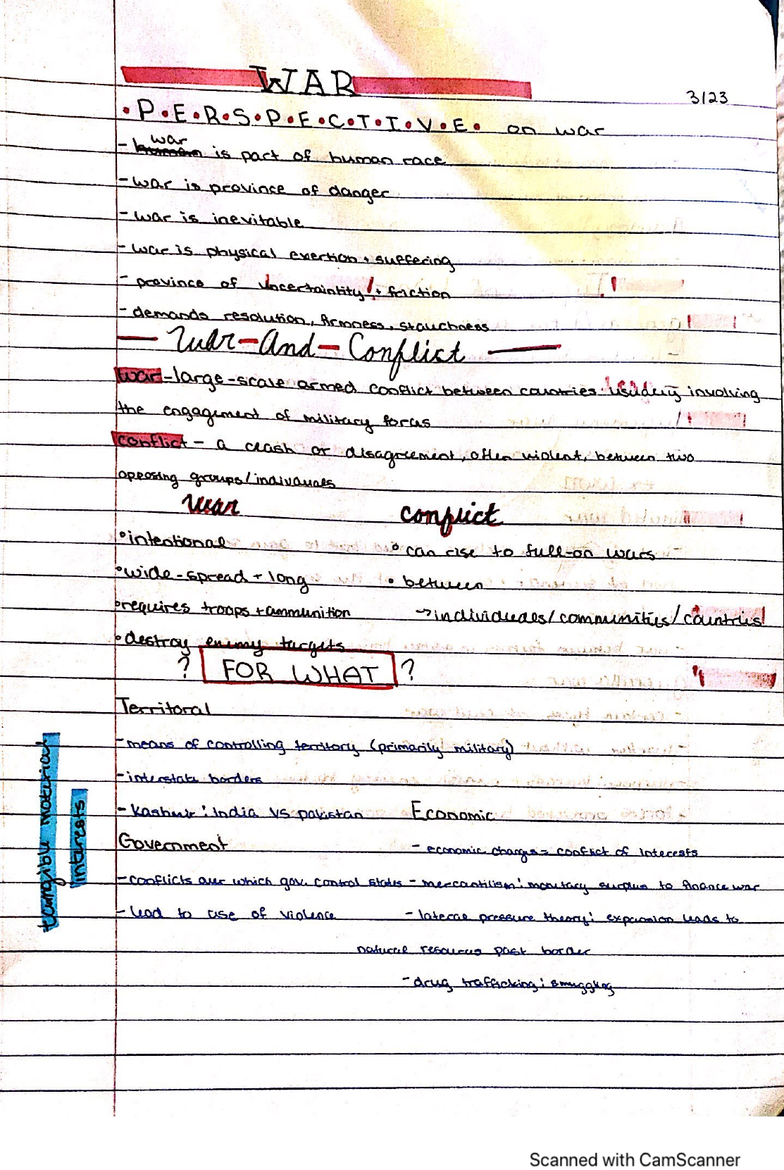 WAR
3/23
• P • E • R • S • P • E • C • T • I • V • E • on war
- war is part of human race
- war is province of danger
- war is inevitable
- war is physical exertion + suffering
- province of uncertaintity! + friction
- demands resolution, firmness, stauchness
— War-And-Conflict —
war - large-scale armed conflict between countries usually involving
the engagement of military forces
conflict - a clash or disagreement, often violent, between two
opposing groups/indivuals
war
conflict
• intentional
• wide-spread + long
• requires troops + ammunition
• destroy enemy targets
• can rise to full-on wars
• between
→ individuals/communities/countries
? FOR WHAT ?
tangible material
interests
Territoral
- means of controlling territory (primarily military)
- interstate borders
- Kashmir: India vs pakistan
Government
- conflicts over which gov. control states
- lead to use of violence
Economic
- economic changes = conflict of interests
- mercantilism: monitary surplus to finance war
- lateral pressure theory: expansion leads to
natural resources past border
- drug trafficking: smuggling
Scanned with CamScanner